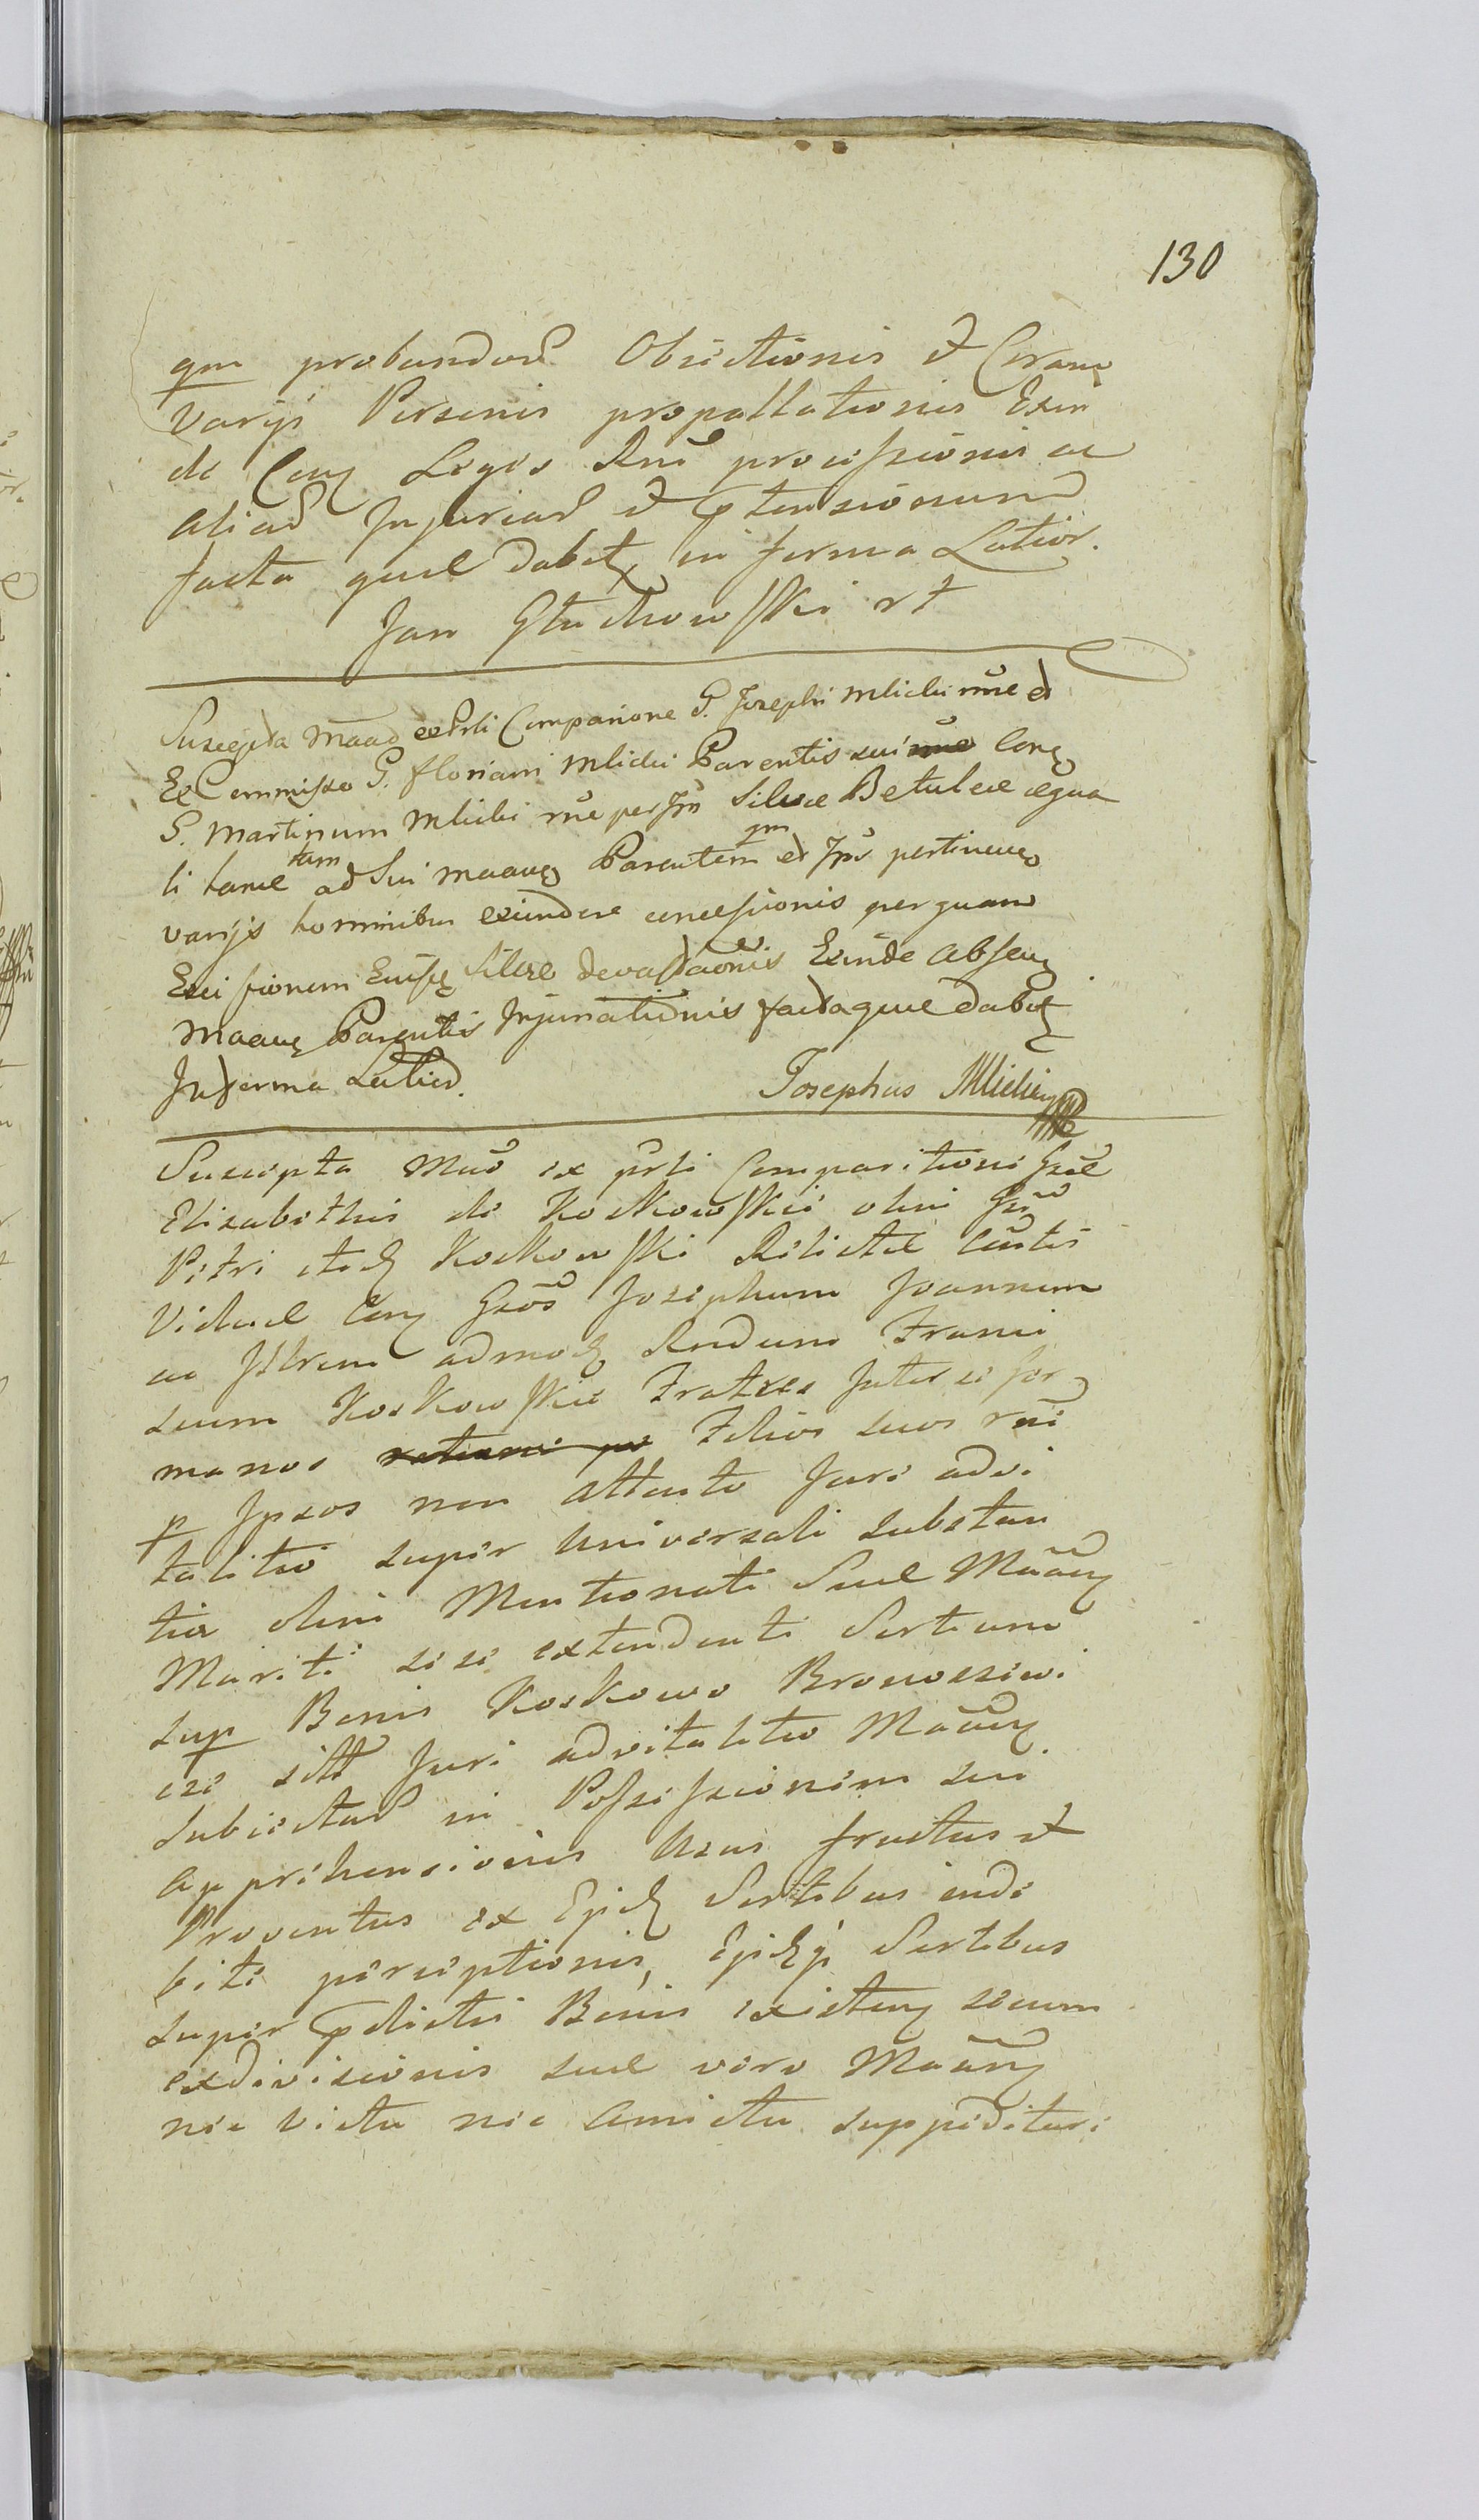 130
qm probandar Obiectionis et Coram
varijs Personis propallationis Exin
de Cong Leges Rni processionis ac
aliar Injuriar et ptensionum
facta quae dabit in forma Latior.
Jan Głuchowski rt
Suscepta Maad ex prli Comparione G. Josephi Mlicki rne et
Ex Commisso G. Floriani Mlicki Parentis sui Cong
G. Martinum Mlicki rne per Jpm Silvae Betuleae aequa
li tam ad Sui Maaug Parentem qm et Jpm pertineng
varijs hominibus exiudere concessionis per quam
Exci sionem Eiusq Silvae devastaonis Exinde Absen
Maaug Parentis Injuriationis factaque dabit
In forma Latior.
Josephus Mlicki mp
Suscepta Mad ex prli Comparitione Gsae
Elisabethis de Koskowskie olim Gsi
Petri itid Koskowski Relictae Consortis
Viduae Cong Gsos Josephum Joannem
ac Jllrem admod Rndum Franci
scum Koskowskie Fratres Inter se Ger
manos Filios suos rni
p Jpsos non attento Juri advi
talitio super universali substan
tia olim Mentionati Suae Maang
Mariti sese extendenti Sortium
sup Bonis Koskowo Bronoszewi
ce sitt Juri advitalitio Maang
Subiectar in Possessionem sui
Apprehensionis Usus fructus et
Proventus ex Ejsd Sortibus inde
biti perceptionis, Ejsdq Sortibus
super pdictis Bonis existeng secum
exdivisionis suae vero Maang
nec victu nec Amictu suppeditari